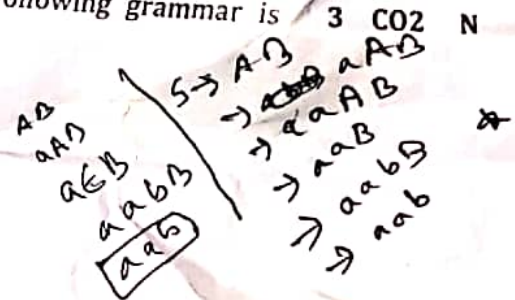 ollowing grammar is 3 CO2 N
AB
aAB
aϵB
aabB
aab
S→ AB
→ aAB
→ aaAB
→ aaB
→ aabB
→ aab